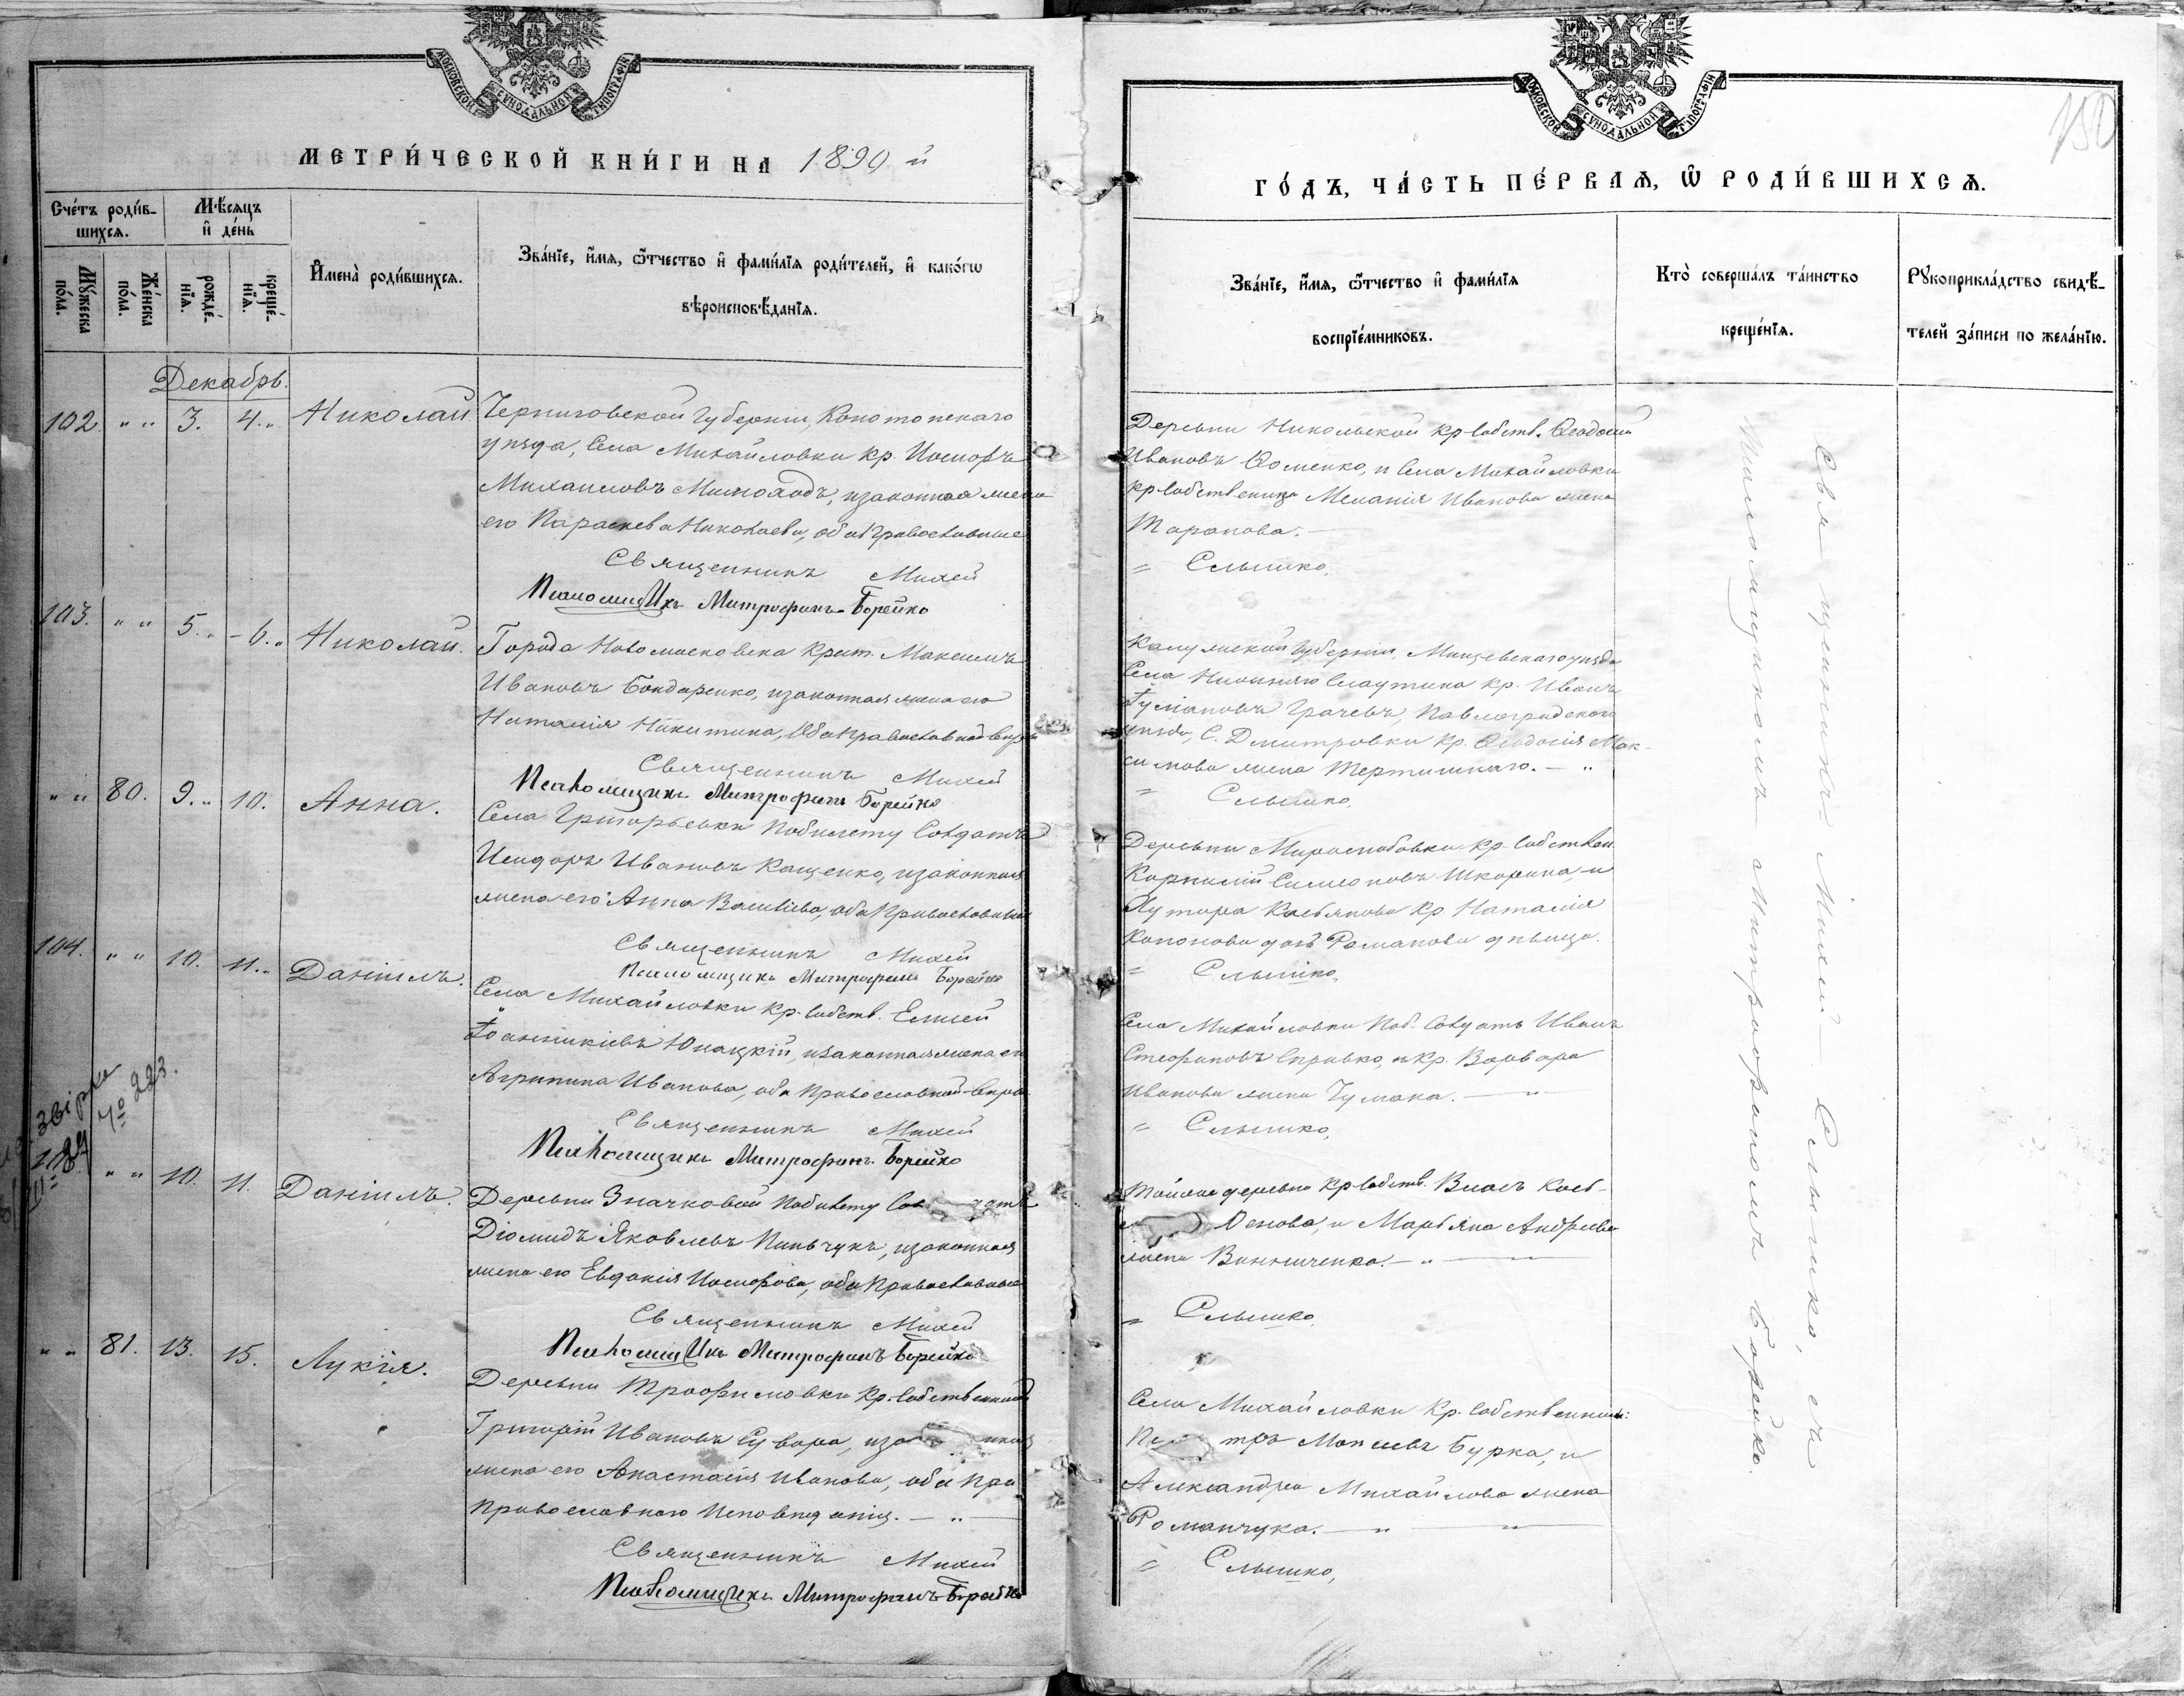 МОСКОВСКОЙ СѴНОДАЛЬНОЙ ТИПОГРАФІИ
МЕТРИ́ЧЕСКОЙ КНИ́ГИ НА 1890 й
Сче́тъ роди́в-
шихсѧ.
Мѣ́сѧцъ
и҆ де́нь
Мꙋ́жеска
по́ла.
Же́нска
по́ла.
рожде́-
нїѧ.
креще́-
нїѧ.
И҆мена̀ роди́вшихсѧ.
Зва́нїе, и҆́мѧ, ѻ҆́тчество и҆ фами́лїѧ роди́телей, и҆ како́гѡ
вѣроисповѣ́данїѧ.
Декабрь.
102. " " 3. 4." Николай
Черниговской губерніи, Конотопскаго
уѣзда, Села Михайловки кр. Іосифъ
Михаиловъ Мимоходъ, изаконная жена
его Параскева Николаева, оба Православные
Священникъ Михей
Псаломщикъ Митрофанъ Борейко
103. " " 5." 6." Николай.
Города Новомосковска Крест. Максимъ
Ивановъ Бондаренко, изаконная жена его
Наталія Никитина, Оба Православной вѣры
Священникъ Михей
Псаломщикъ Митрофанъ Борейко
" " 80. 9." 10. Анна.
Села Григорьевки Побилету Солдатъ
Исидоръ Ивановъ Кащенко, изаконная
жена его Анна Василіева, оба Православные
Священникъ Михей
Псаломщикъ Митрофанъ Борейко
104. " " 10. 11." Даніилъ.
Села Михайловки кр. собств. Елисей
Іоанникіевъ Юнацкій, изаконная жена его
Агрипина Иванова, оба Православной вѣры
Священникъ Михей
Псаломщикъ Митрофанъ Борейко
звірка
№ 223.
" " 10. 11. Даніилъ.
Деревни Значковой Побилету Солдатъ
Діомидъ Яковлевъ Пиньчукъ, изаконная
жена его Евдокія Іосифова, оба Православные
Священникъ Михей
Псаломщикъ Митрофанъ Борейко
" " 81. 13. 15. Лукія.
Деревни Трофимовки Кр. собственникъ
Григорій Ивановъ Сувора, изаконная
жена его Анастасія Иванова, оба Пра
Православнаго Исповѣданія. — " —
Священникъ Михей
Псаломщикъ Митрофанъ Борейко
МОСКОВСКОЙ СѴНОДАЛЬНОЙ ТИПОГРАФІИ
150
ГО́ДЪ, ЧА́СТЬ ПЕ́РВАѦ, Ѽ РОДИ́ВШИХСѦ.
Зва́нїе, и҆́мѧ, ѻ҆́тчество и҆ фами́лїѧ
воспрїе́мниковъ.
Кто̀ соверша́лъ та́инство
креще́нїѧ.
Рꙋкоприкла́дство свидѣ́-
телей за́писи по жела́нїю.
Деревни Никольской кр. собств. Ѳеодосій
Ивановъ Ѳоменко, и Села Михайловки
кр. собственица Меланія Иванова жена
Таранова. —
= Слышко,
Калужской губерніи, Мищевскаго уѣзда
Села Нижняго кр. Иванъ
Грачевъ, Павлоградскаго
уѣзда, С. Дмитровки кр. Ѳеодосія Мак-
симова жена Тертишнаго. — "
= Слышко,
Деревни Миролюбовки кр. собствен.
Корнилій Симеоновъ Шкорина, и
Хутора Касьянова кр. Наталія
Кононова дочь Романова дѣвица.
= Слышко,
Села Михайловки Поб. Солдатъ Иванъ
Стефановъ Справко, и кр. Варвара
Иванова жена Чумака. — " —
= Слышко,
Тойже деревни кр. собств. Власъ
Осиова, и Марьяна Андреева
жена Винниченка. — " —
= Слышко,
Села Михайловки Кр. собственники:
Петръ Моисеевъ Бурка, и
Александра Михайлова жена
Романчука. — " — "
= Слышко,
Священникъ Михей Слышко, съ
Псаломщикомъ Митрофаномъ Борейко.